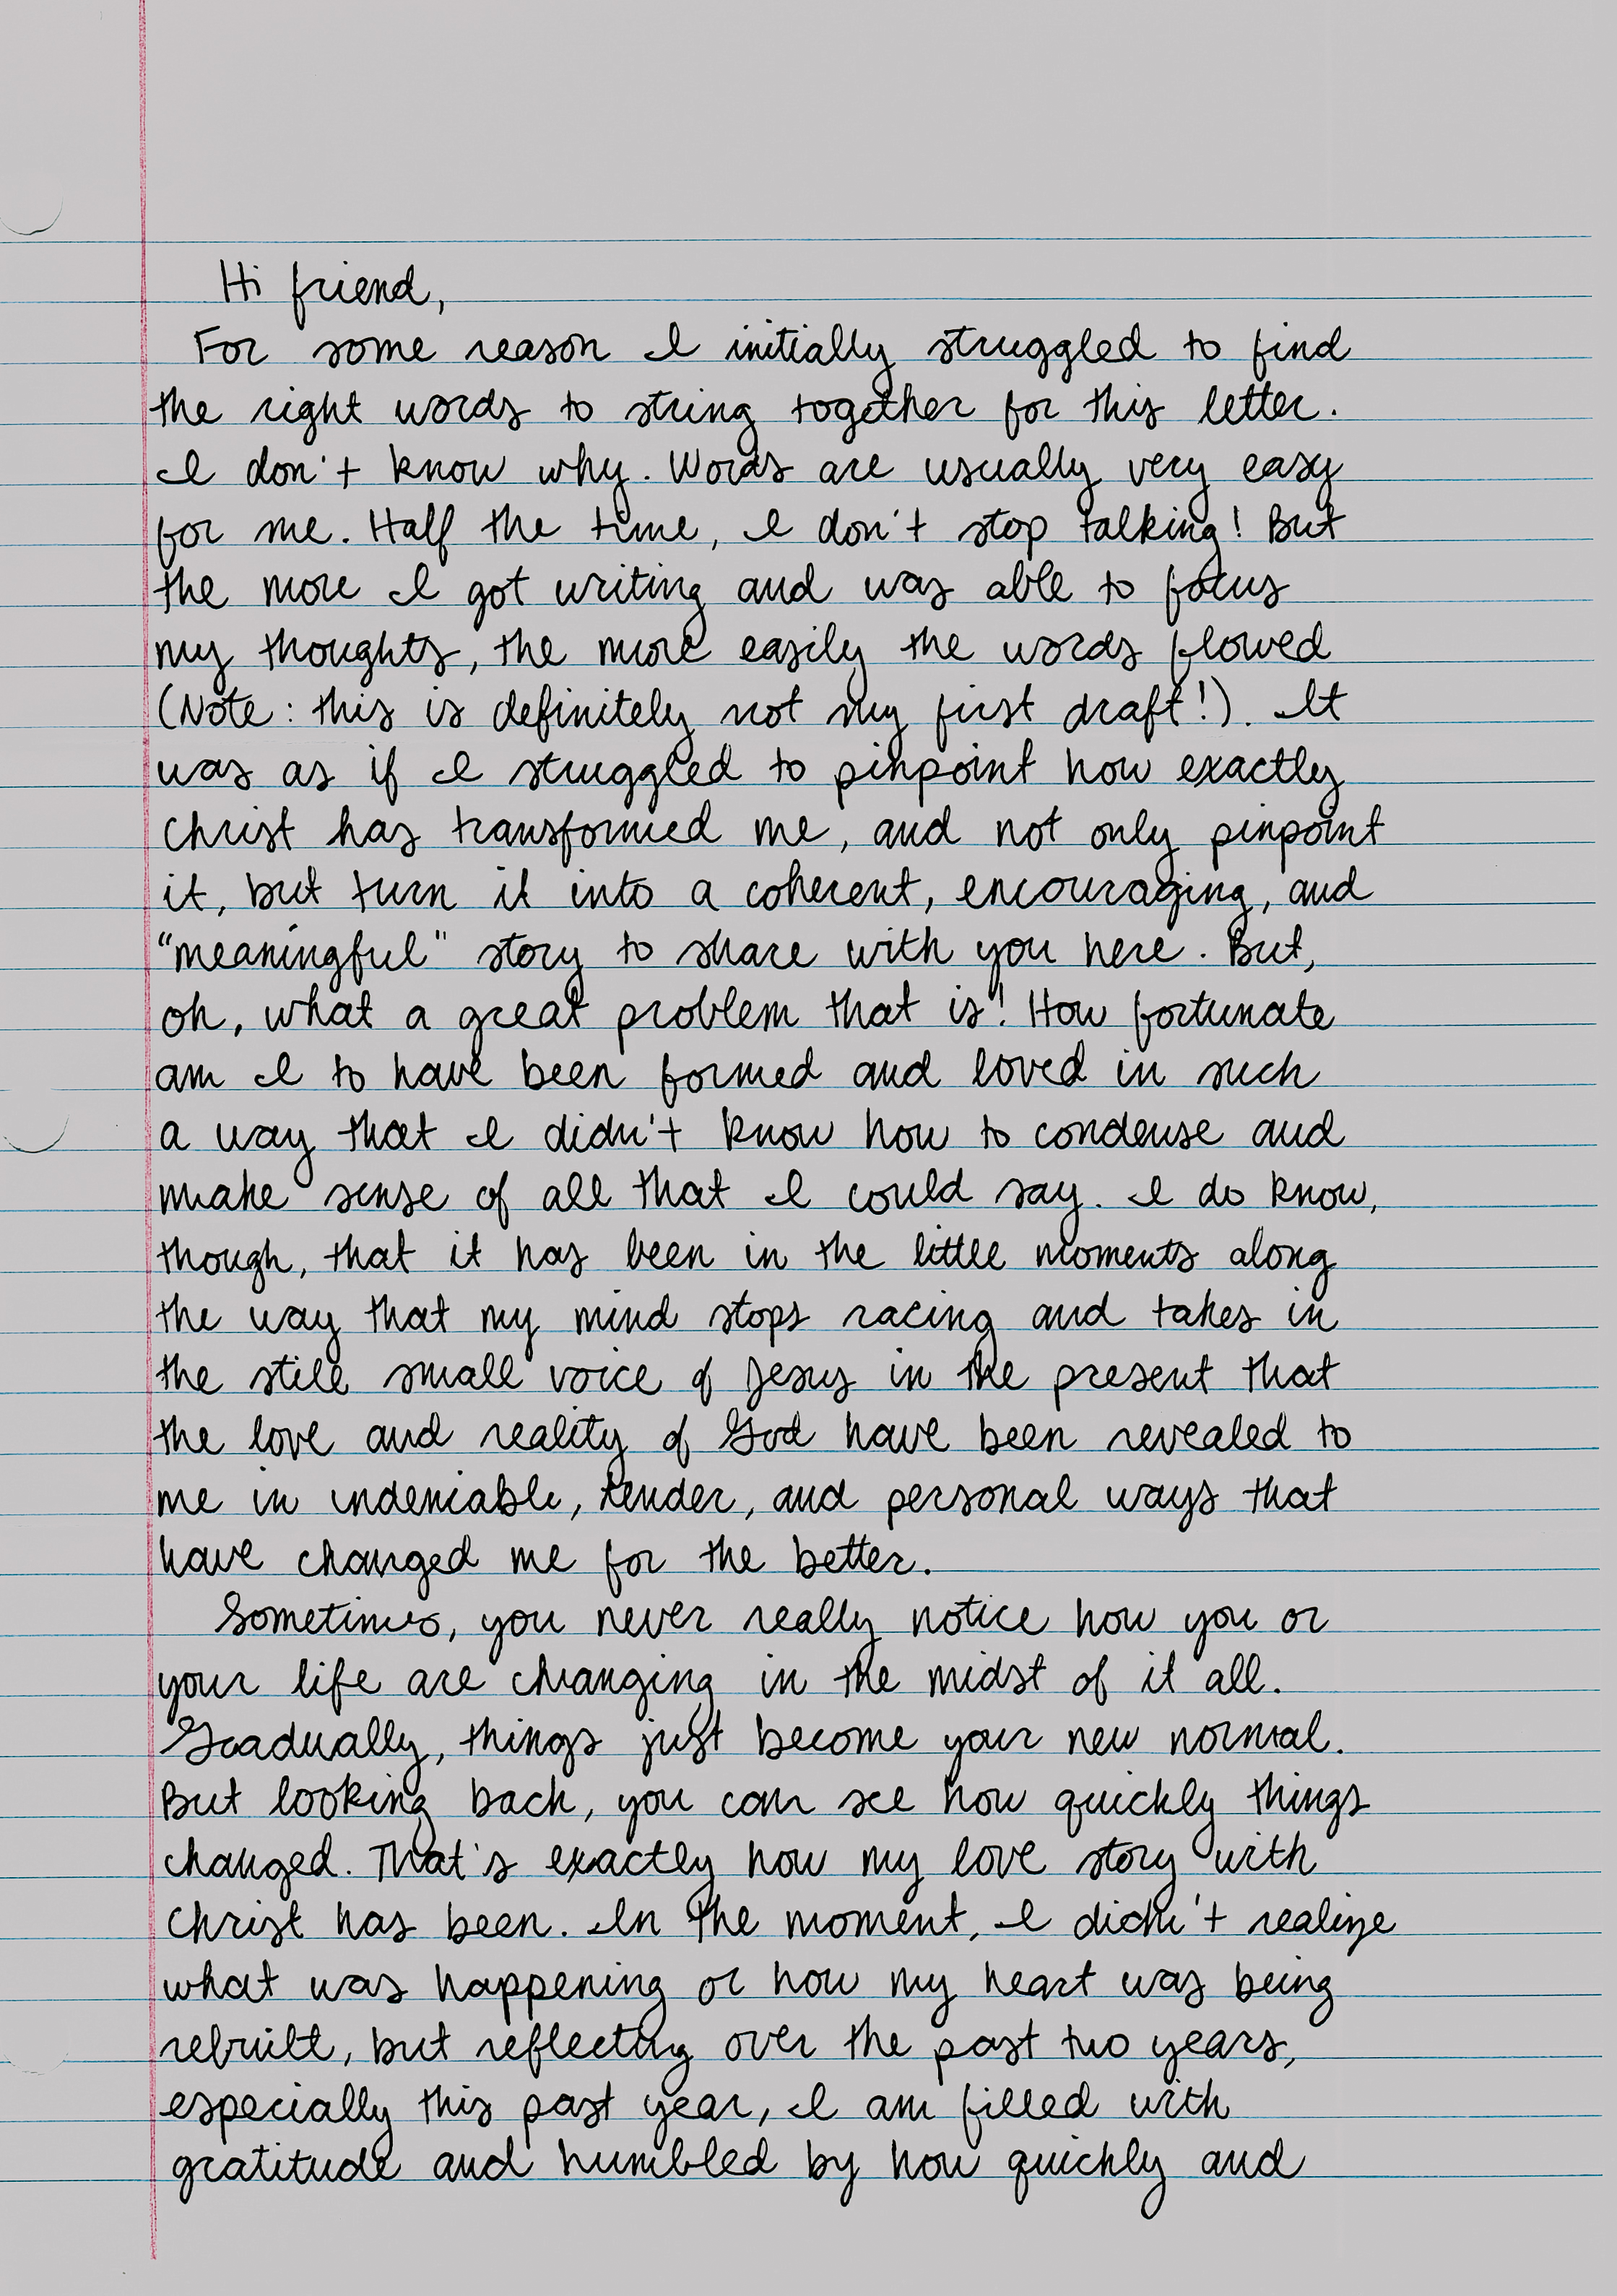 Hi friend,
For some reason I initially struggled to find
the right words to string together for this letter.
I don't know why. Words are usually very easy
for me. Half the time, I don't stop talking! But
the more I got writing and was able to focus
my thoughts, the more easily the words flowed
(Note: this is definitely not my first draft!). It
was as if I struggled to pinpoint how exactly
Christ has transformed me, and not only pinpoint
it, but turn it into a coherent, encouraging, and
"meaningful" story to share with you here. But,
oh, what a great problem that is! How fortunate
am I to have been formed and loved in such
a way that I didn't know how to condense and
make sense of all that I could say. I do know,
though, that it has been in the little moments along
the way that my mind stops racing and takes in
the still small voice of Jesus in the present that
the love and reality of God have been revealed to
me in undeniable, tender, and personal ways that
have changed me for the better.
Sometimes, you never really notice how you or
your life are changing in the midst of it all.
Gradually, things just become your new normal.
But looking back, you can see how quickly things
changed. That's exactly how my love story with
Christ has been. In the moment, I didn't realize
what was happening or how my heart was being
rebuilt, but reflecting over the past two years,
especially this past year, I am filled with
gratitude and humbled by how quickly and